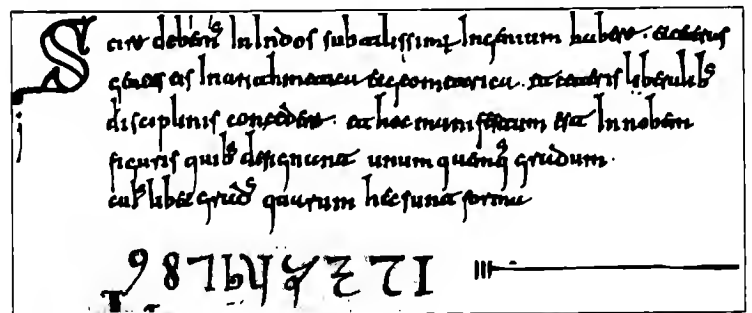 Scire debem⁹ In Indos subtilissimū Ingenium habere. et ceteras
gentes eis In arithmetica et geometrica. et ceteris liberalib⁹
disciplinis concedere. et hoc manifestum est In nobem
figuris quib⁹ designant unum quenq⁹ gradum.
cui⁹libet grad⁹ quarum hec sunt forma
9 8 7 6 5 4 3 2 1